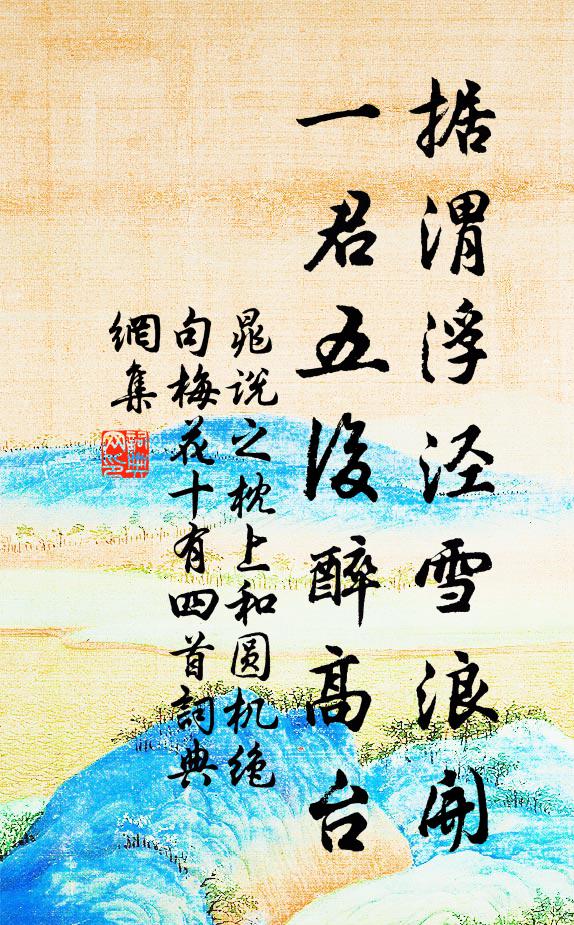 据渭浮泾雪浪開
一君五後醉高台
晁说之枕上和圆机绝
句梅花十有四首詞典
網集